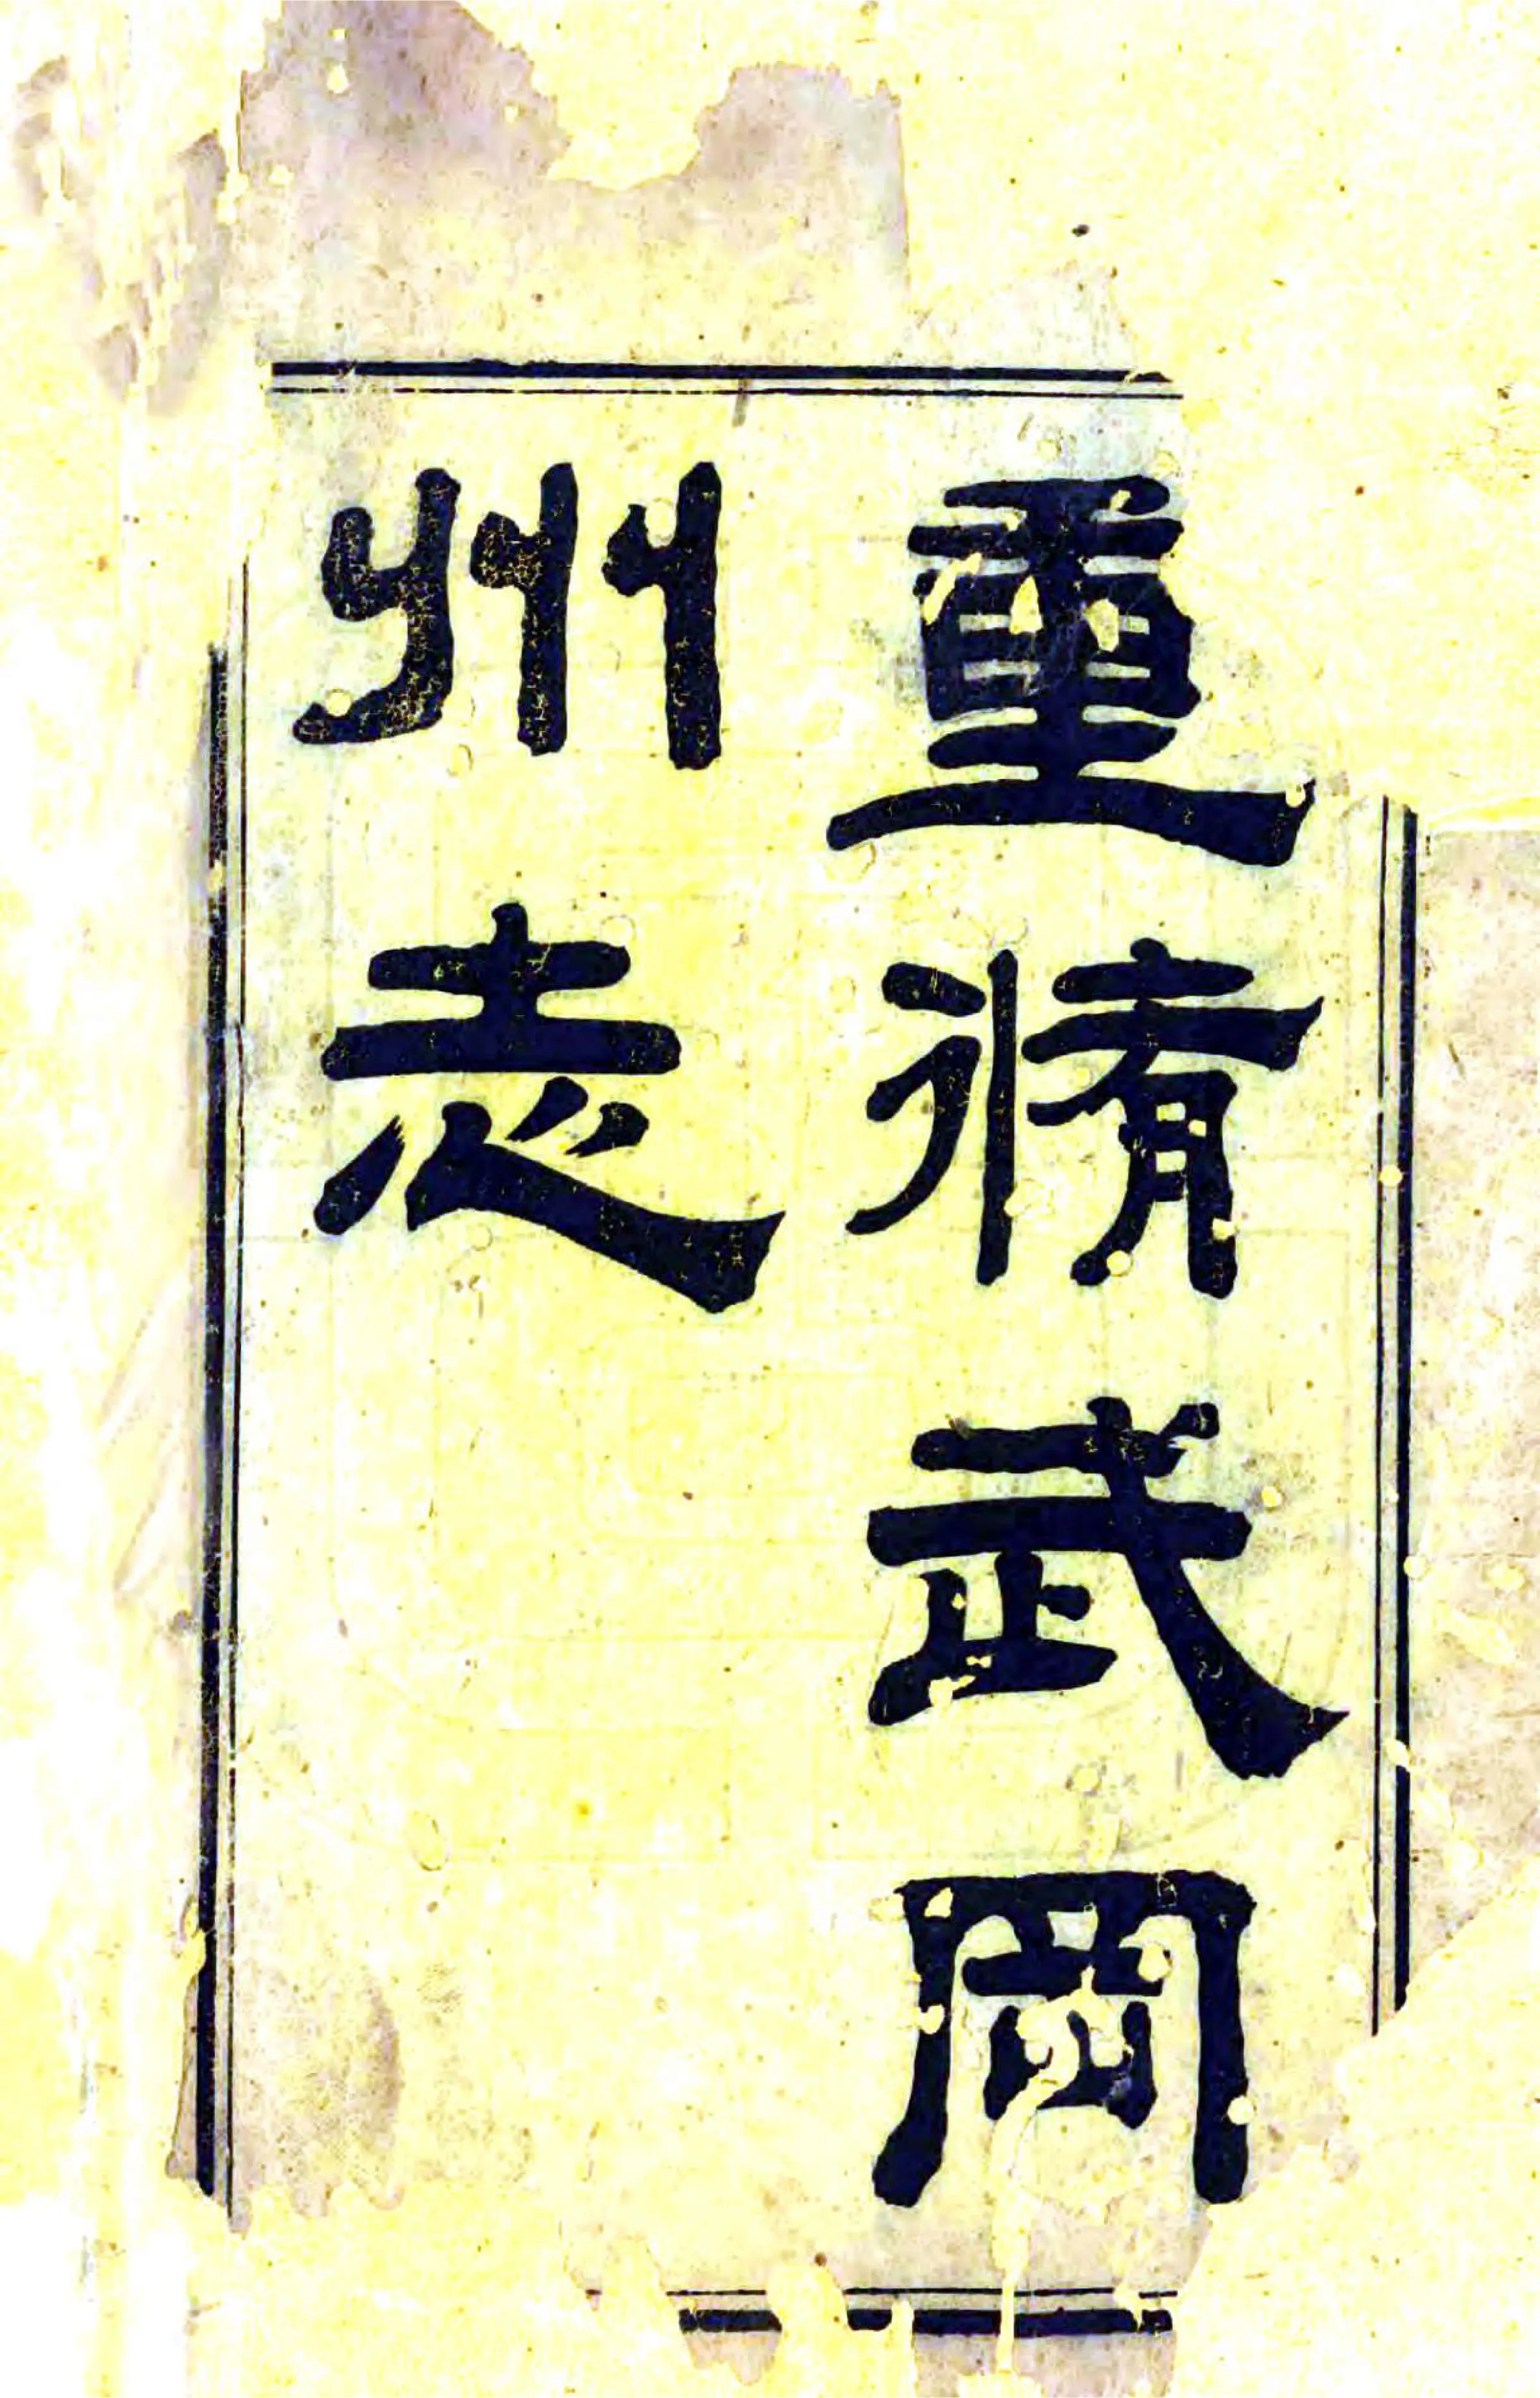 重脩武岡
州志